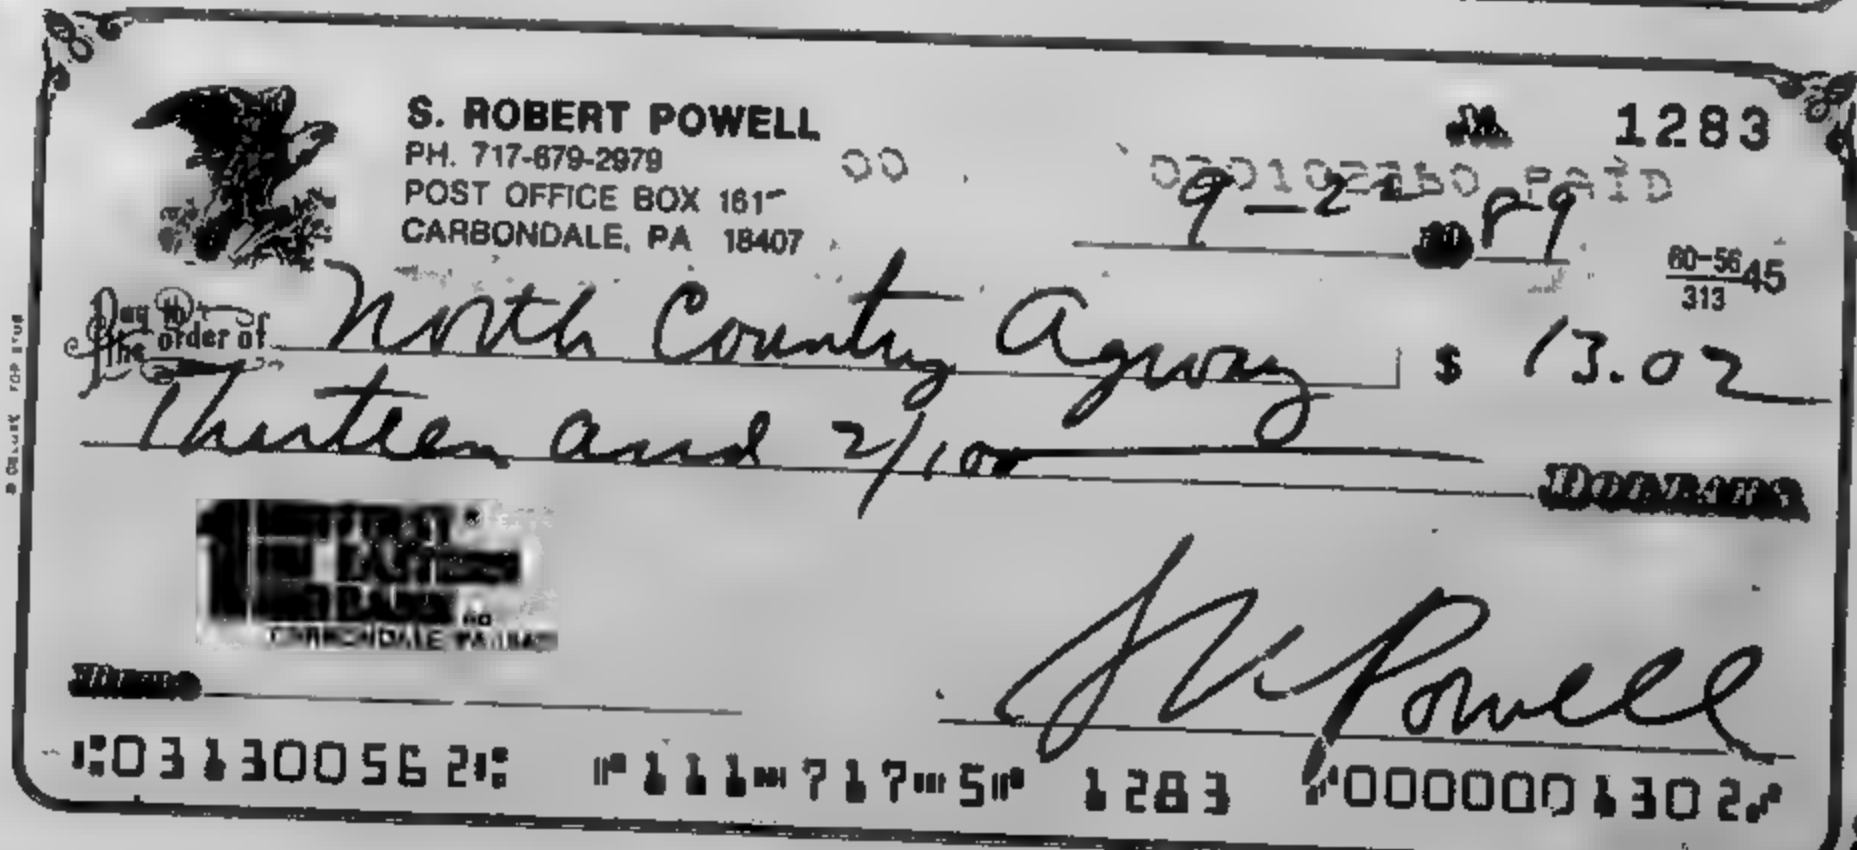 S. ROBERT POWELL
PH. 717-679-2979
POST OFFICE BOX 161
CARBONDALE, PA 18407
00
PAID
1283
9-2 89
60-56 45
313
Pay to the order of North Country Agway $ 13.02
Thirteen and 2/100 DOLLARS
BANK
CARBONDALE, PA
S R Powell
⑆031300562⑆ ⑈111⑉717⑉5⑈ 1283 ⑈0000001302⑈